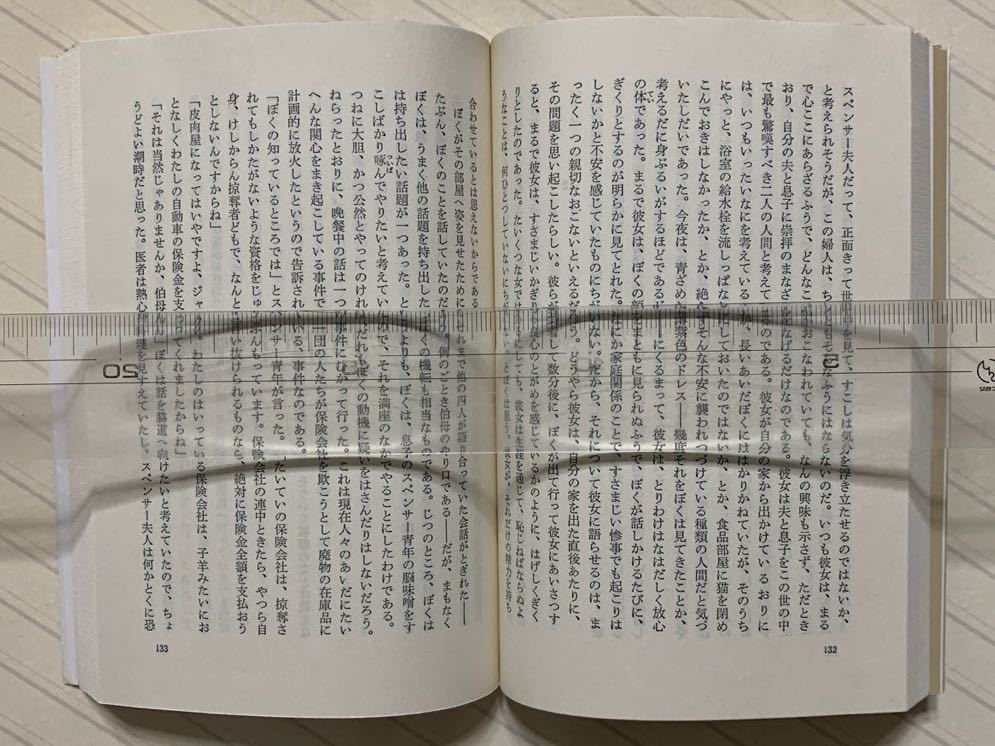 スペンサー夫人だって、正面きって世間を見て、すこしは気分を浮き立たせるのではないか、
と考えられそうだが、この婦人は、ちっともそんなふうにはならないのだ。いつも彼女は、まる
で心ここにあらざるふうで、どんなことがおこなわれていても、なんの興味も示さず、ただとき
おり、自分の夫と息子に崇拝のまなざしをなげるだけなのである。彼女は夫と息子をこの世の中
で最も驚嘆すべき二人の人間と考えているのである。彼女が自分の家から出かけているおりに
は、いつもいったいなにを考えているのか、長いあいだぼくにははかりかねていたが、そのうち
にやっと、浴室の給水栓を流しっぱなしにしておいたのではないか、とか、食品部屋に猫を閉め
こんでおきはしなかったか、とか、絶えずそんな不安に襲われつづけている種類の人間だと気づ
いたしだいであった。今夜は、青ざめた 紫色のドレス――幾度それをぼくは見てきたことか、
考えるだに身ぶるいがするほどである―― にくるまって、彼女は、とりわけはなはだしく放心
の体であった。まるで彼女は、ぼくの顔をまともに見られぬふうで、ぼくが話しかけるたびに、
ぎくりとするのが明らかに見てとれた。なにか家庭関係のことで、すさまじい惨事でも起こりは
しないかと不安を感じていたものにちがいない。だから、それについて彼女に語らせるのは、ま
ったく一つの親切なおこないといえるだろう。どうやら彼女は、自分の家を出た直後あたりに、
その問題を思い起こしたらしい。彼らが到着して数分後に、ぼくが出て行って彼女にあいさつす
ると、まるで彼女は、すさまじいかぎりの良心のとがめを感じているかのように、はげしくぎく
りとしたのであった。たいくつな女ではあるにしても、彼女は生涯を通じて、恥じねばならぬよ
うなことは、何ひとつしていないにちがいない、とぼくは思う。彼女が、それだけの精力を持ち
132
合わせているとは思えないからである。
ぼくがその部屋へ姿を見せたために、それまで他の四人が語り合っていた会話がとぎれた――
たぶん、ぼくのことを話していたのだろう。例のごとき伯母のやり口である――だが、まもなく
ぼくは、うまく他の話題を持ち出した。ぼくの機転も相当なものである。じつのところ、ぼくは
は持ち出したい話題が一つあった。というよりも、ぼくは、息子のスペンサー青年の脳味噌をす
こしばかり啄んでやりたいと考えていたので、それを満座のなかでやることにしたわけである。
つねに大胆、かつ公然とやってのければ、だれもぼくの動機に疑いをはさんだりはしないだろう。
ねらったとおりに、晩餐中の話は一つの事件にむかって行った。これは現在人々のあいだにたい
へんな関心をまき起こしている事件で、一団の人たちが保険会社を欺こうとして廃物の在庫品に
計画的に放火したというので告訴されている、事件なのである。
「ぼくの知っているところでは」とスペンサー青年が言った。「たいていの保険会社は、掠奪さ
れてもしかたがないような資格をじゅうぶんもっています。保険会社の連中ときたら、やつら自
身、けしからん掠奪者どもで、なんとか言い抜けられるものなら、絶対に保険金全額を支払おう
としないんですからね」
「皮肉屋になってはいやですよ、ジャ 。わたしのはいっている保険会社は、子羊みたいにお
となしくわたしの自動車の保険金を支払ってくれましたからね」
「それは当然じゃありませんか、伯母さん」ぼくは話を脇道へ向けたいと考えていたので、ちょ
うどよい潮時だと思った。医者は熱心に料理を見すえていたし、スペンサー夫人は何かとくに恐
133